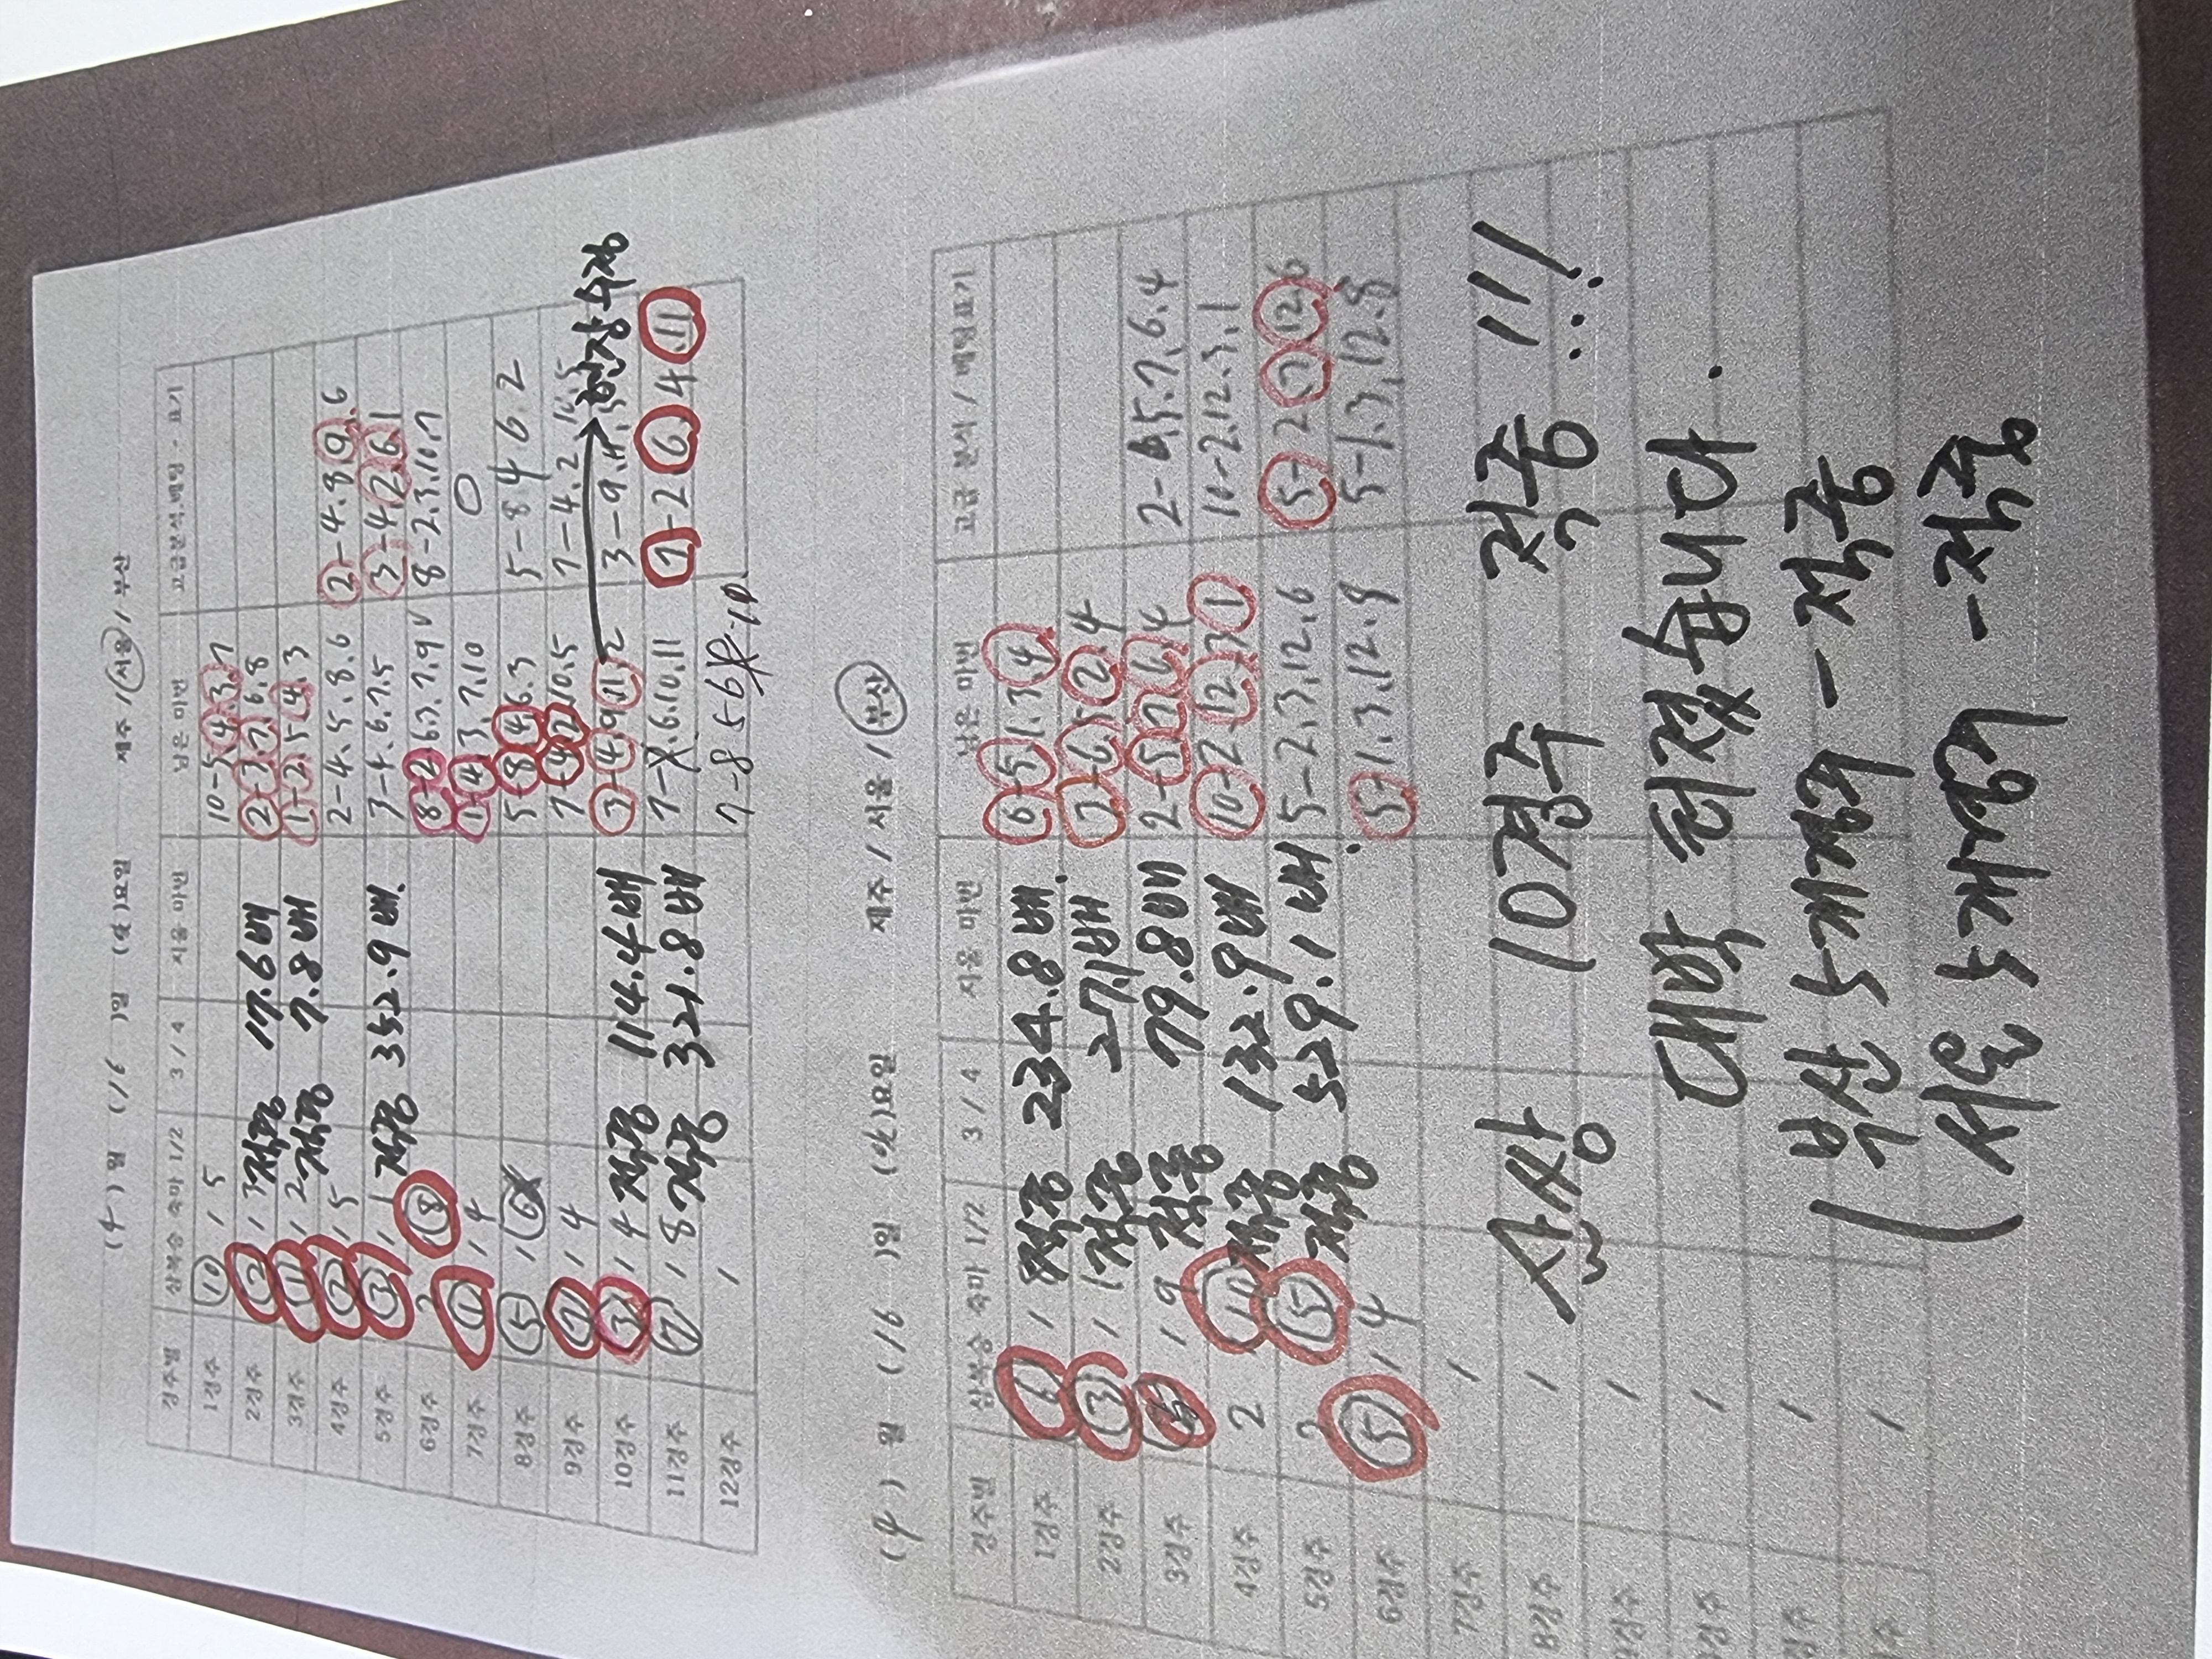 (4)월 (16)일 (일)요일 제주 / 서울 / 부산
경주별 삼복승 축마 1/2 3 / 4 지움 마번 남은 마번
1경주 10 / 5 10-5.4.3.7
2경주 2 / 3 적중 17.6배 2-3.7.6.8
3경주 1 / 2 적중 7.8배 1-2.5.4.3
4경주 2 / 5 2-4.5.8.6 2-4.8.9.6
5경주 3 / 1 적중 352.9배. 3-4.6.7.5 3-4.2.6.1
6경주 8 8-2.6.3.7.9 8-2.3.10.7
7경주 1 / 4 1-4.3.7.10 0
8경주 5 / 6 5-8.4.6.3 5-8 4 6 2
9경주 7 / 4 7-4.2.10.5 7-4.2
10경주 3 / 4 적중 114.4배 3-4.9.11.2 3-9.4 현장수정
11경주 7 / 8 적중 321.8배 7-8.6.10.11 7-2.6.4.11
12경주 / 7-8 5 6
(4) 월 (16 )일 (일)요일 제주 / 서울 / 부산
경주별 삼복승 축마 1/2 3 / 4 지움 마번 남은 마번 고급 분석 / 배팅표기
1경주 6 / 8 적중 234.8배. 6-5.1.3.4
2경주 3 / 1 적중 27.1배 3-6.5.2.4
3경주 / 9 적중 79.8배 2-5.7.6.4 2-5.7.6.4
4경주 2 10 적중 132.9배 10-2.12.3.1 10-2.12.3.1
5경주 5 적중 529.1배! 5-2.3.12.6 5-2.7.12.6
6경주 5 / 4 5-1.3.12.8 5-1.3.12.8
7경주 /
8경주 /
삼쌍 10경주 적중!!!
대박 터졌습니다.
부산 5개경주 - 적중
서울 5개경주 - 적중